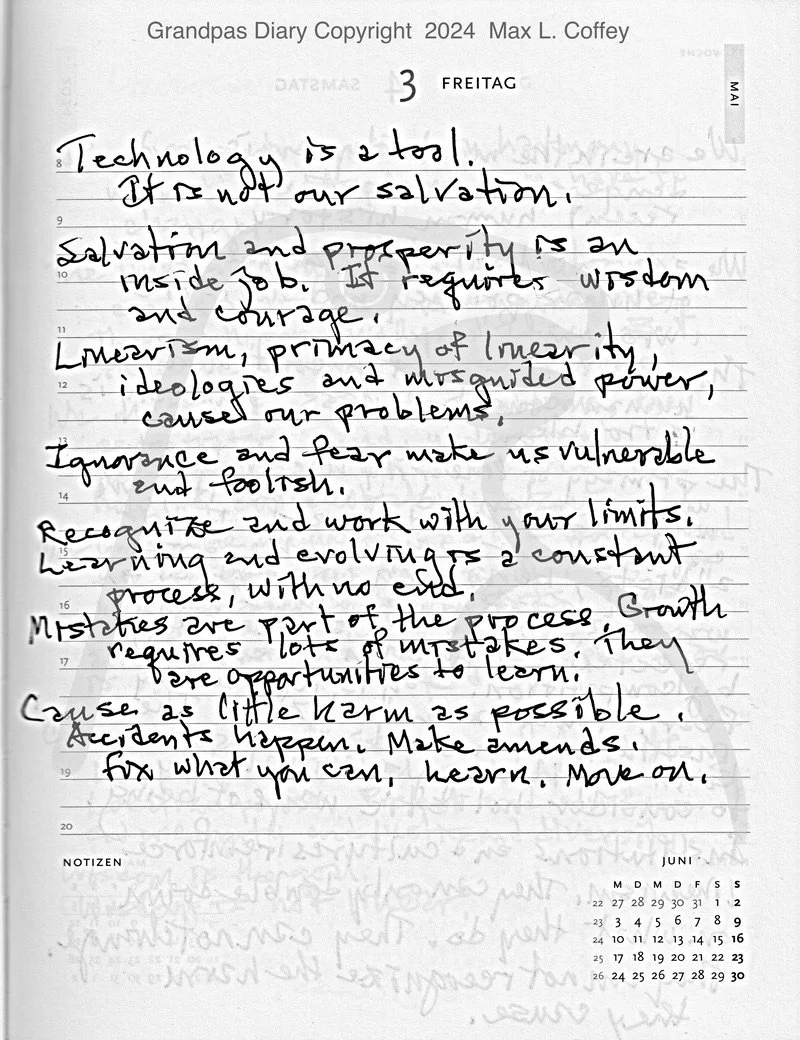 Grandpas Diary Copyright 2024 Max L. Coffey
3 FREITAG
MAI
8 Technology is a tool.
It is not our salvation.
9
Salvation and prosperity is an
10 inside job. It requires wisdom
and courage.
11
Linearism, primacy of linearity,
12 ideologies and misguided power,
cause our problems.
13
Ignorance and fear make us vulnerable
14 and foolish.
Recognize and work with your limits.
15 Learning and evolving is a constant
process, with no end.
16
Mistakes are part of the process. Growth
requires lots of mistakes. They
17 are opportunities to learn.
Cause as little harm as possible.
Accidents happen. Make amends.
19 Fix what you can. Learn. Move on.
20
NOTIZEN
JUNI
M D M D F S S
22 27 28 29 30 31 1 2
23 3 4 5 6 7 8 9
24 10 11 12 13 14 15 16
25 17 18 19 20 21 22 23
26 24 25 26 27 28 29 30